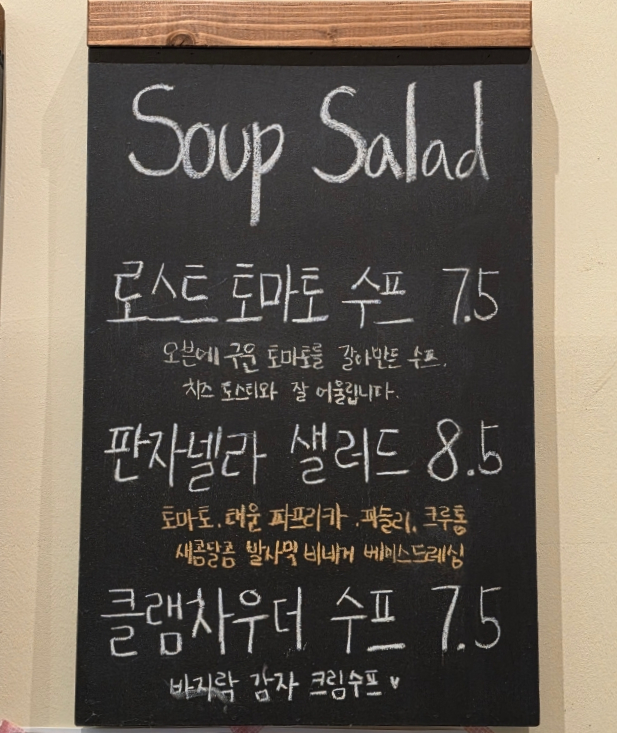 Soup Salad
로스트 토마토 수프 7.5
오븐에 구운 토마토를 갈아만든 수프.
치즈 토스티와 잘 어울립니다.
판자넬라 샐러드 8.5
토마토, 태운 파프리카, 파슬리, 크루통
새콤달콤 발사믹 비네거 베이스드레싱
클램차우더 수프 7.5
바지락 감자 크림수프 ♥